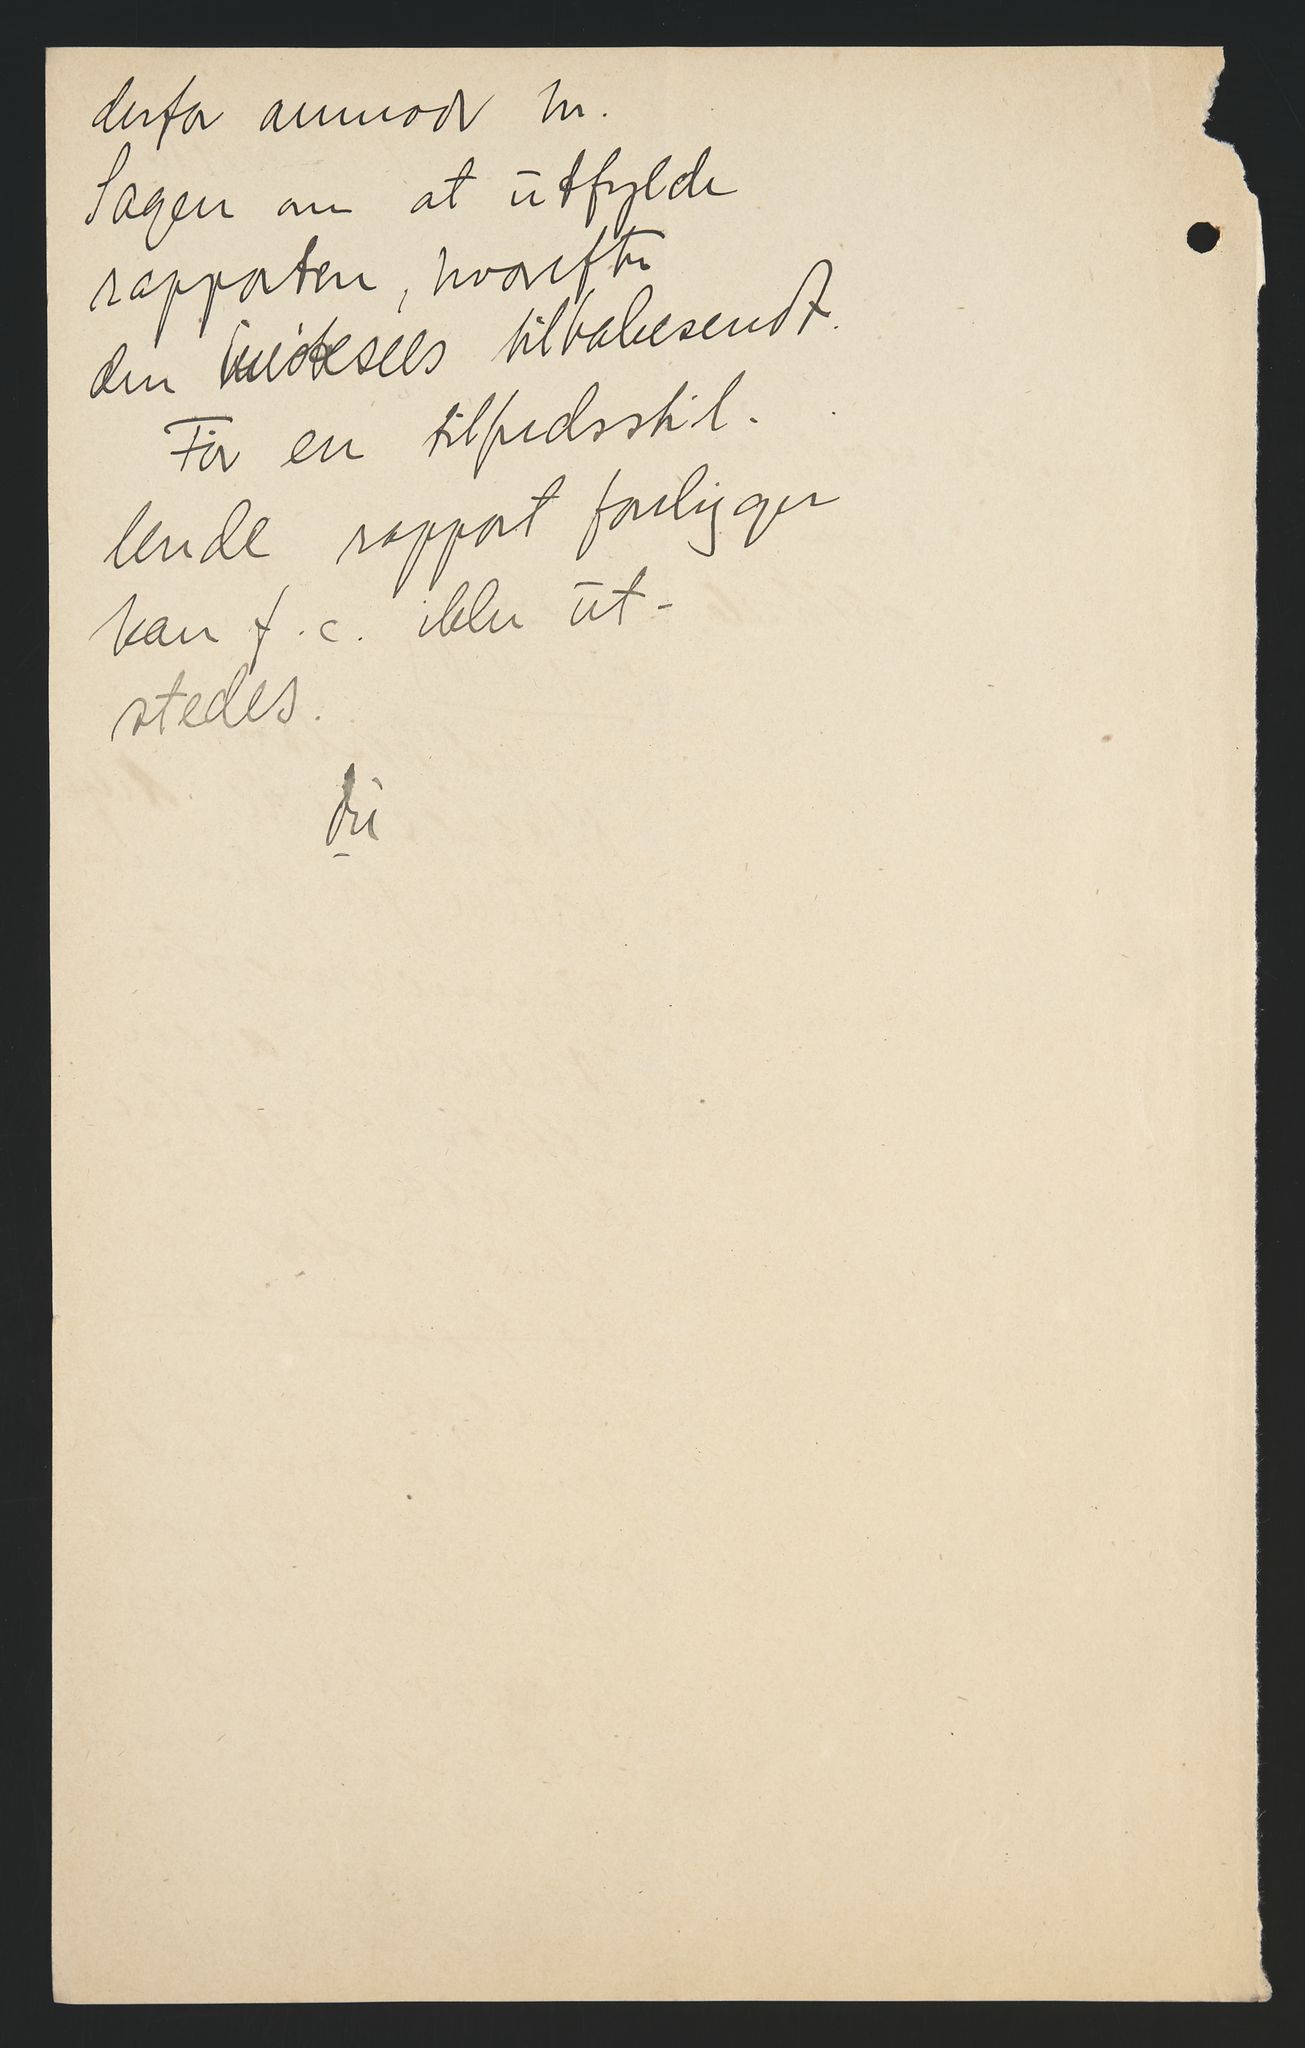 derfor anmode hr.
Sagen om at utfylde
rapporten, hvorefter
den imøtesees tilbakesendt.
Før en tilfredsstil-
lende rapport foreligger
kan f.c. ikke ut-
stedes.